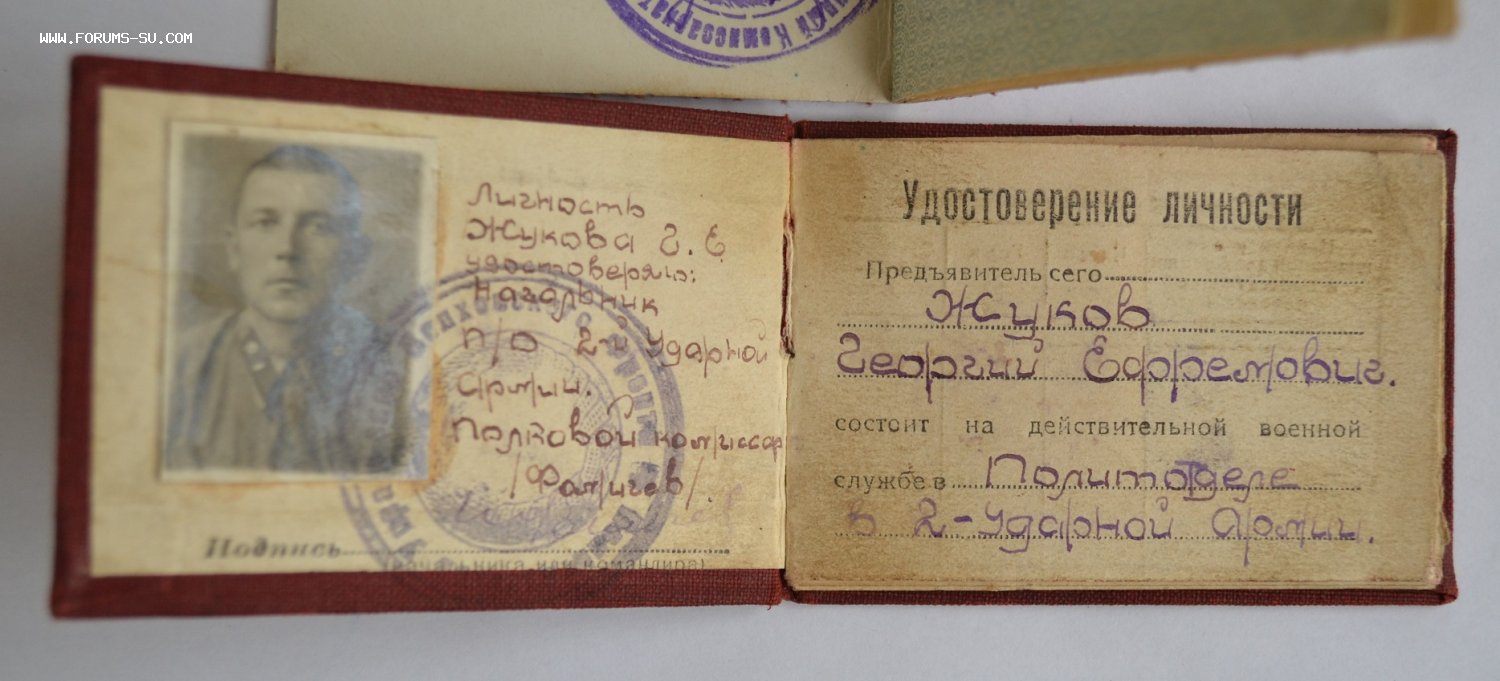 www.forums-su.com
Личность
Жукова Г. Е
удостоверяю:
Начальник
п/о 2-й Ударной
Армии.
Полковой комиссар
/Фамичев/.
Подпись
(начальника или командира)
Удостоверение личности
Предъявитель сего
Жуков
Георгий Ефремович.
состоит на действительной военной
службе в Политотделе
в 2-Ударной Армии.